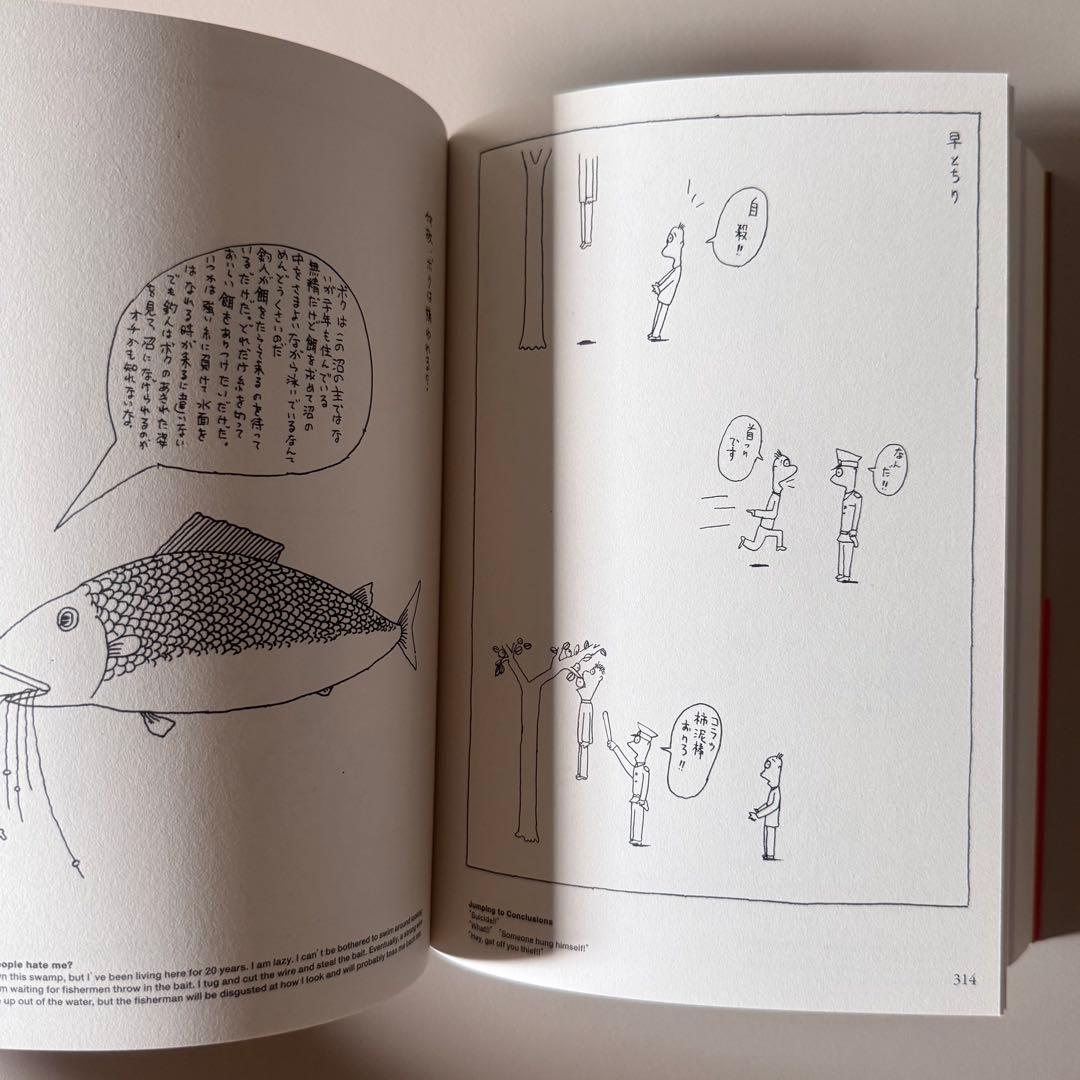 何故、ボクは嫌われるの
ボクはこの沼の主ではな
いが二十年も住んでいる
無精だけど餌を求めて沼の
中を ながら泳いでいるなんて
めんどうくさいのだ
釣人が餌をたらして来るのを待って
いるだけだ。それだけ糸を切って
おいしい餌をありつけた わけだ。
いつかは強い糸に負けて水面を
はなれる時が来るに違いない
でも釣人はボクのあきれた姿
を見て沼になげられるのが
オチかも知れないな
eople hate me?
n this swamp, but I've been living here for 20 years. I am lazy. I can't be bothered to swim around seeking
m waiting for fishermen throw in the bait. I tug and cut the wire and steal the bait. Eventually, a strong wire
up out of the water, but the fisherman will be disgusted at how I look and will probably toss me back into
早とちり
自殺!!
首つりです
なんだ!!
コラッ
柿泥棒
おりろ!!
Jumping to Conclusions
"Suicide!!"
"What!!" "Someone hung himself!"
"Hey, get off you thief!!"
314